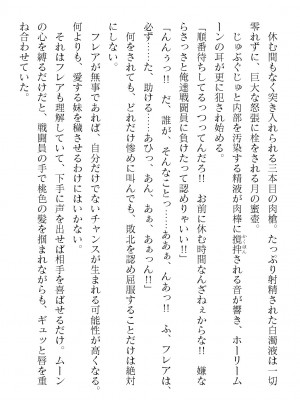 休む間もなく突き入れられる三本目の肉槍。たっぷり射精された白濁液は一切
零れずに、巨大な怒張に栓をされる月の蜜壺。
じゅぶぐじゅと内部を汚染する精液が肉棒に攪拌される音が響き、ホーリーム
ーンの耳が更に犯され始める。
「順番待ちしてるっつってんだろ!! お前に休む時間なんざねぇからな!! 嫌な
らさっさと俺達戦闘員に負けたって認めりゃいい!!」
「んんぅっ!! だ、誰が、そんなこどっ……ああっ、んあっ!! ふ、フレアは、
必ず……た、助ける……あひっ、あん、あぁ、あぁっん!!」
何をされても、どれだけ惨めに叫んでも、敗北を認め屈服することだけは絶対
にしない。
フレアが無事であれば、自分だけでないチャンスが生まれる可能性が高くなる。
何よりも、愛する妹を穢させるわけにはいかない。
それはフレアも理解していて、下手に声を出せば相手を喜ばせるだけ。ムーン
の心を縛るだけだと、戦闘員の手で桃色の髪を掴まれながらも、ギュッと唇を重
ね合わせていた。